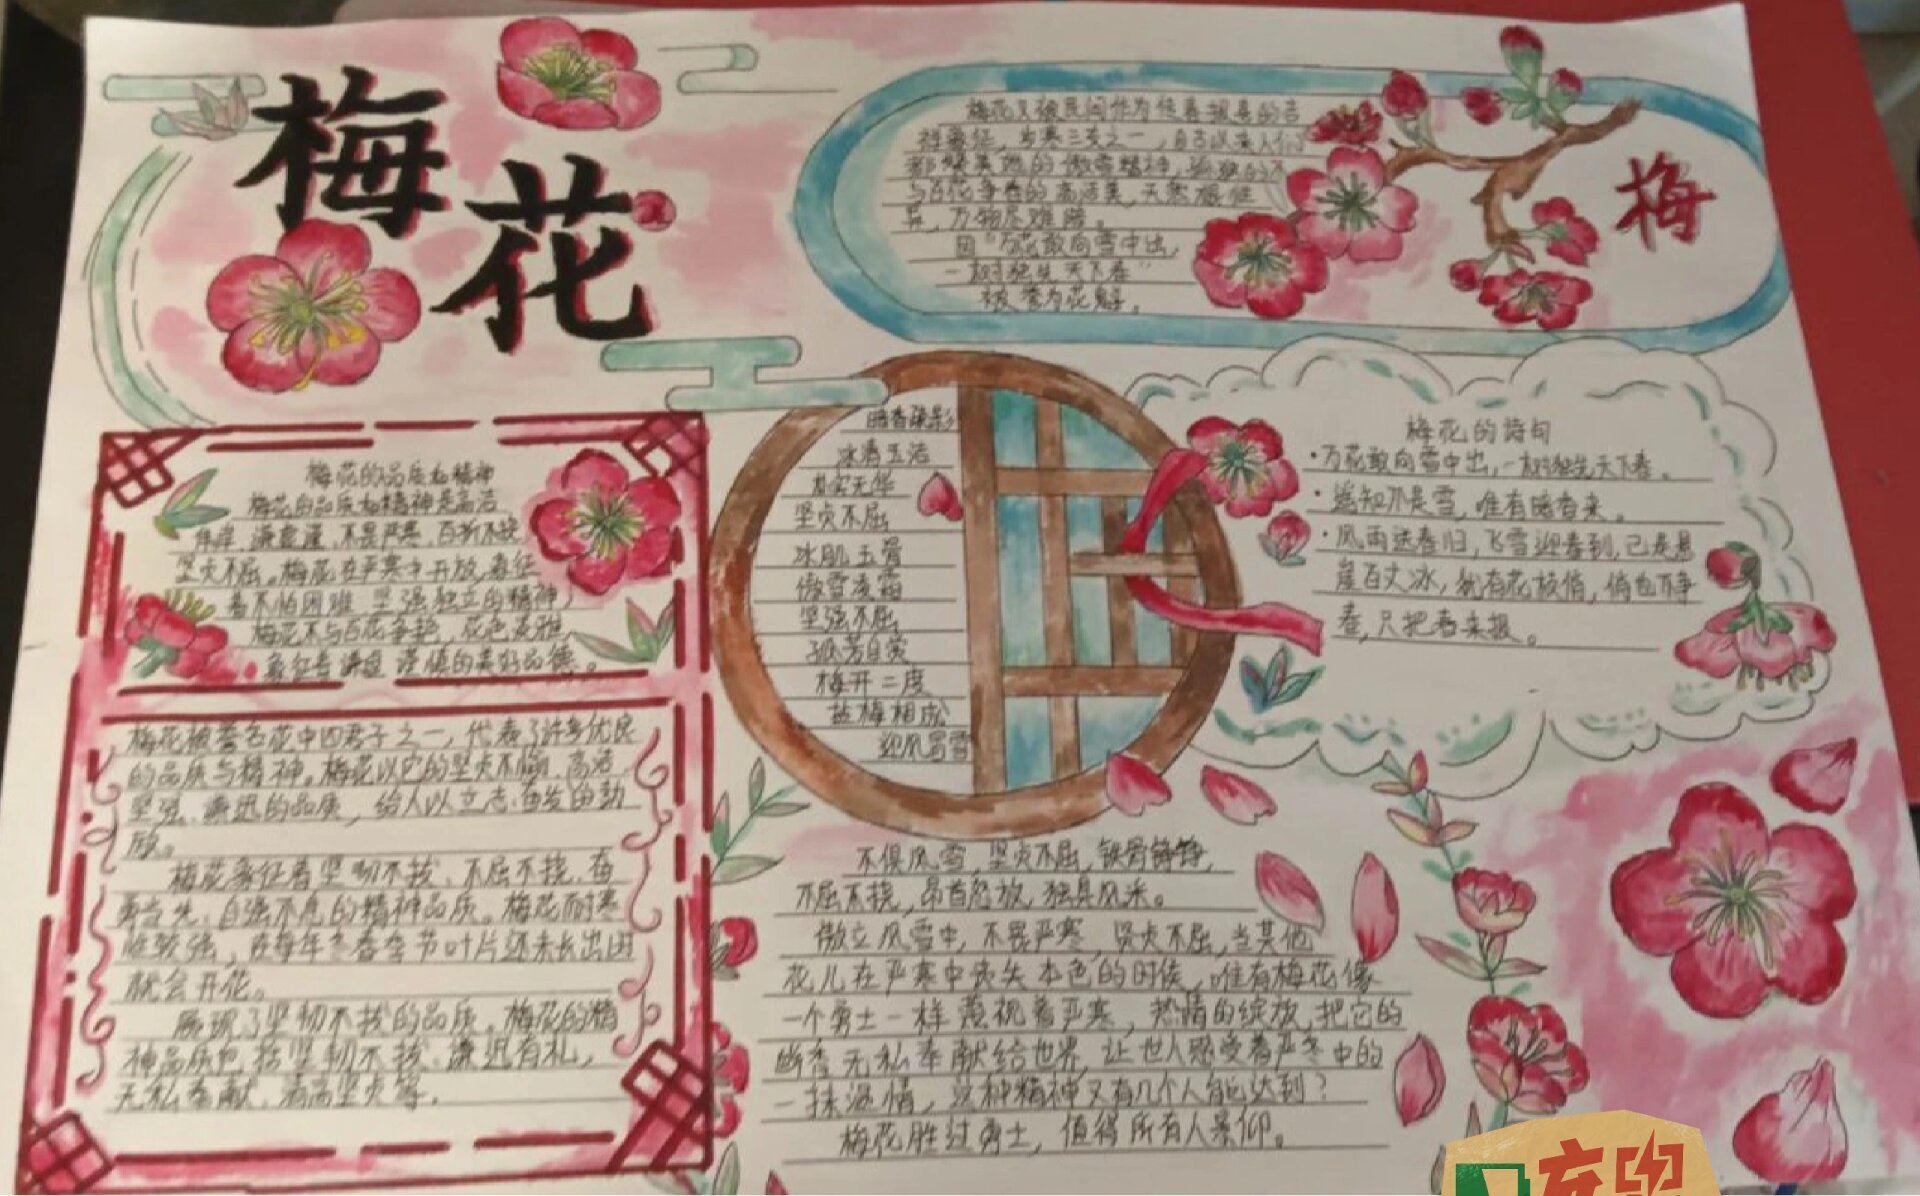 梅花
梅花又被民间作为传春报喜的吉
祥象征，岁寒三友之一，自古以来人们
都赞美她的傲雪精神，孤独的
与百花争春的高洁美，天然
异，万物尽难陪。
因“万花敢向雪中出，
一树独先天下春”
被誉为花魁。
梅
梅花的品质和精神
梅花的品质和精神是高洁
谦虚谨，不畏严寒，百折不挠
坚贞不屈。梅花在严寒中开放，象征
着不怕困难 坚强独立的精神，
梅花不与百花争艳，花色淡雅，
象征着谦虚 谨慎的美好品德。
梅花被誉名花中四君子之一，代表了许多优良
的品质与精神。梅花以它的坚贞不屈、高洁、
坚强、谦逊的品质，给人以立志奋发的励
梅花象征着坚韧不拔、不屈不挠、奋
勇当先、自强不息的精神品质。梅花耐寒
性较强，在每年冬春季节叶片还未长出时
就会开花。
展现了坚韧不拔的品质。梅花的精
神品质包括坚韧不拔、谦逊有礼，
无私奉献、清高坚贞等。
暗香疏影
冰清玉洁
真实无华
坚贞不屈
冰肌玉骨
傲雪凌霜
坚强不屈
孤芳自赏
梅开二度
盐梅相成
迎风冒雪
梅花的诗句
·万花敢向雪中出，一树独先天下春。
·遥知不是雪，唯有暗香来。
·风雨送春归，飞雪迎春到，已是悬
崖百丈冰，犹有花枝俏，俏也不争
春，只把春来报。
不惧风雪，坚贞不屈，铁骨铮铮，
不屈不挠，昂首怒放，独具风采。
傲立风雪中，不畏严寒，坚贞不屈，当其他
花儿在严寒中丧失本色的时候，唯有梅花像
一个勇士一样蔑视着严寒，热情的绽放，把它的
幽香无私奉献给世界，让世人感受着严冬中的
一抹温情，这种精神又有几个人能达到？
梅花胜过勇士，值得所有人景仰。